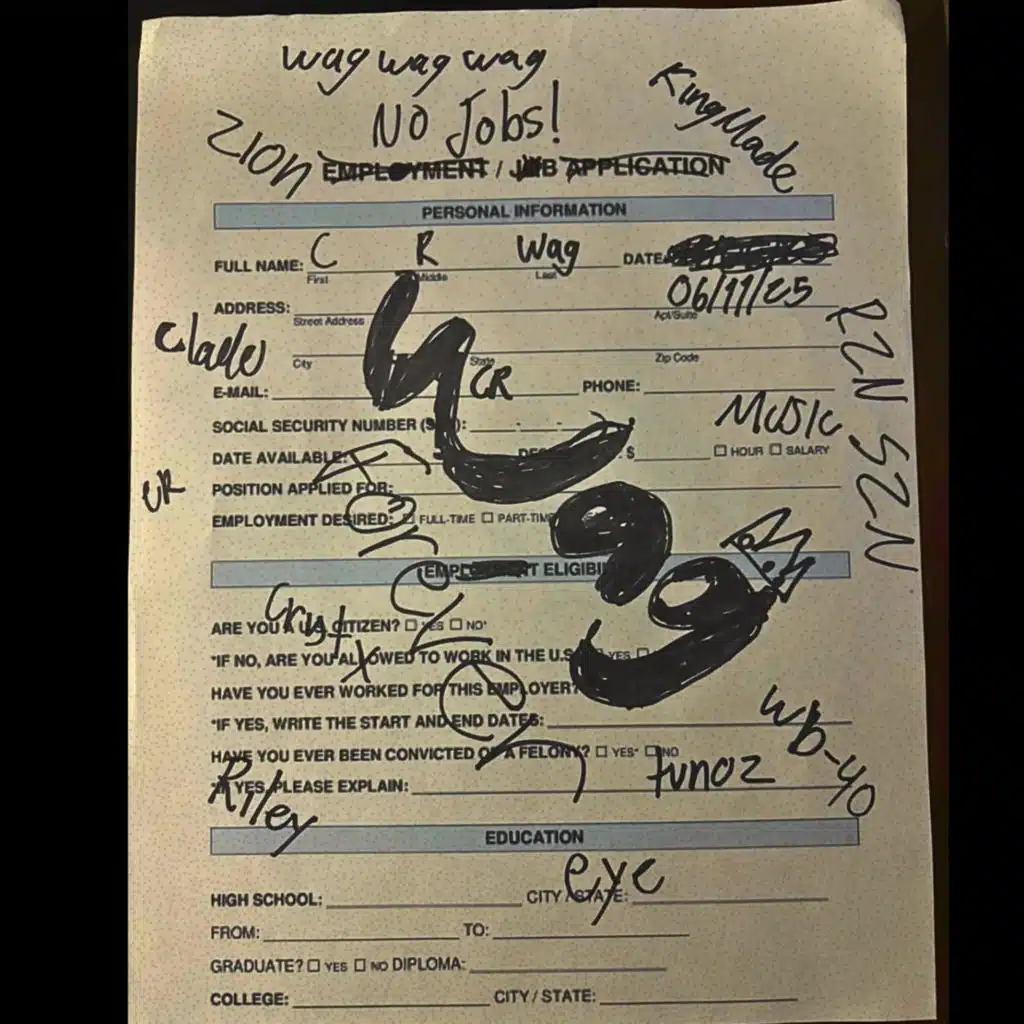 wag wag wag
NO Jobs!
KingMade
ZION
EMPLOYMENT / JOB APPLICATION
PERSONAL INFORMATION
FULL NAME: C R Wag DATE
First Middle Last
06/11/25
ADDRESS:
Street Address Apt/Suite
RZN SZN
City State Zip Code
CR
E-MAIL: PHONE:
Music
SOCIAL SECURITY NUMBER
DATE AVAILABLE: $ ☐ HOUR ☐ SALARY
POSITION APPLIED FOR:
EMPLOYMENT DESIRED: ☐ FULL-TIME ☐ PART-TIME
wag
EMPLOYMENT ELIGIBI
Crust
ARE YOU A U.S. CITIZEN? ☐ YES ☐ NO*
*IF NO, ARE YOU ALLOWED TO WORK IN THE U.S. YES
HAVE YOU EVER WORKED FOR THIS EMPLOYER?
*IF YES, WRITE THE START AND END DATES:
HAVE YOU EVER BEEN CONVICTED OF A FELONY? ☐ YES* ☐ NO
Riley
YES, PLEASE EXPLAIN:
EDUCATION
eye
HIGH SCHOOL: CITY / STATE:
FROM: TO:
GRADUATE? ☐ YES ☐ NO DIPLOMA:
COLLEGE: CITY / STATE: